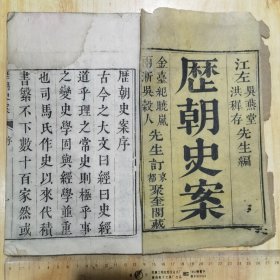 江左吳燕堂洪稚存先生編
歷朝史案
金臺紀曉嵐南浙吳穀人先生訂
京都聚奎閣藏
歷朝史案序
古今之大文曰經曰史經
道乎理之常史則極乎事
之變史學固與經學並重
也司馬氏作史以來代積
書纂不下數十百家然或